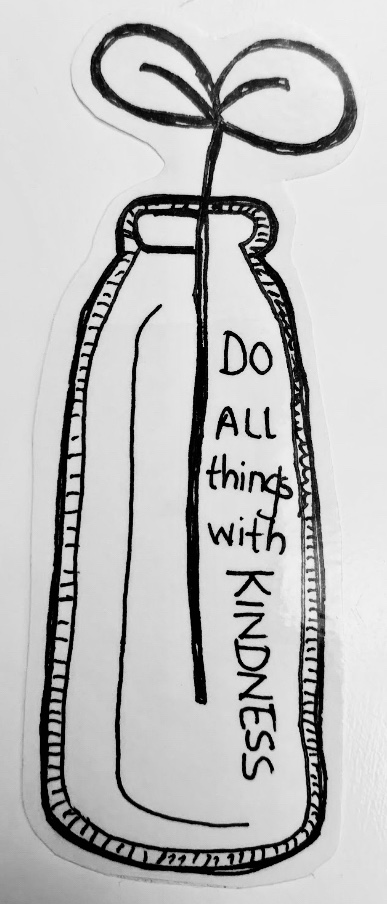 DO
ALL
things
with
KINDNESS